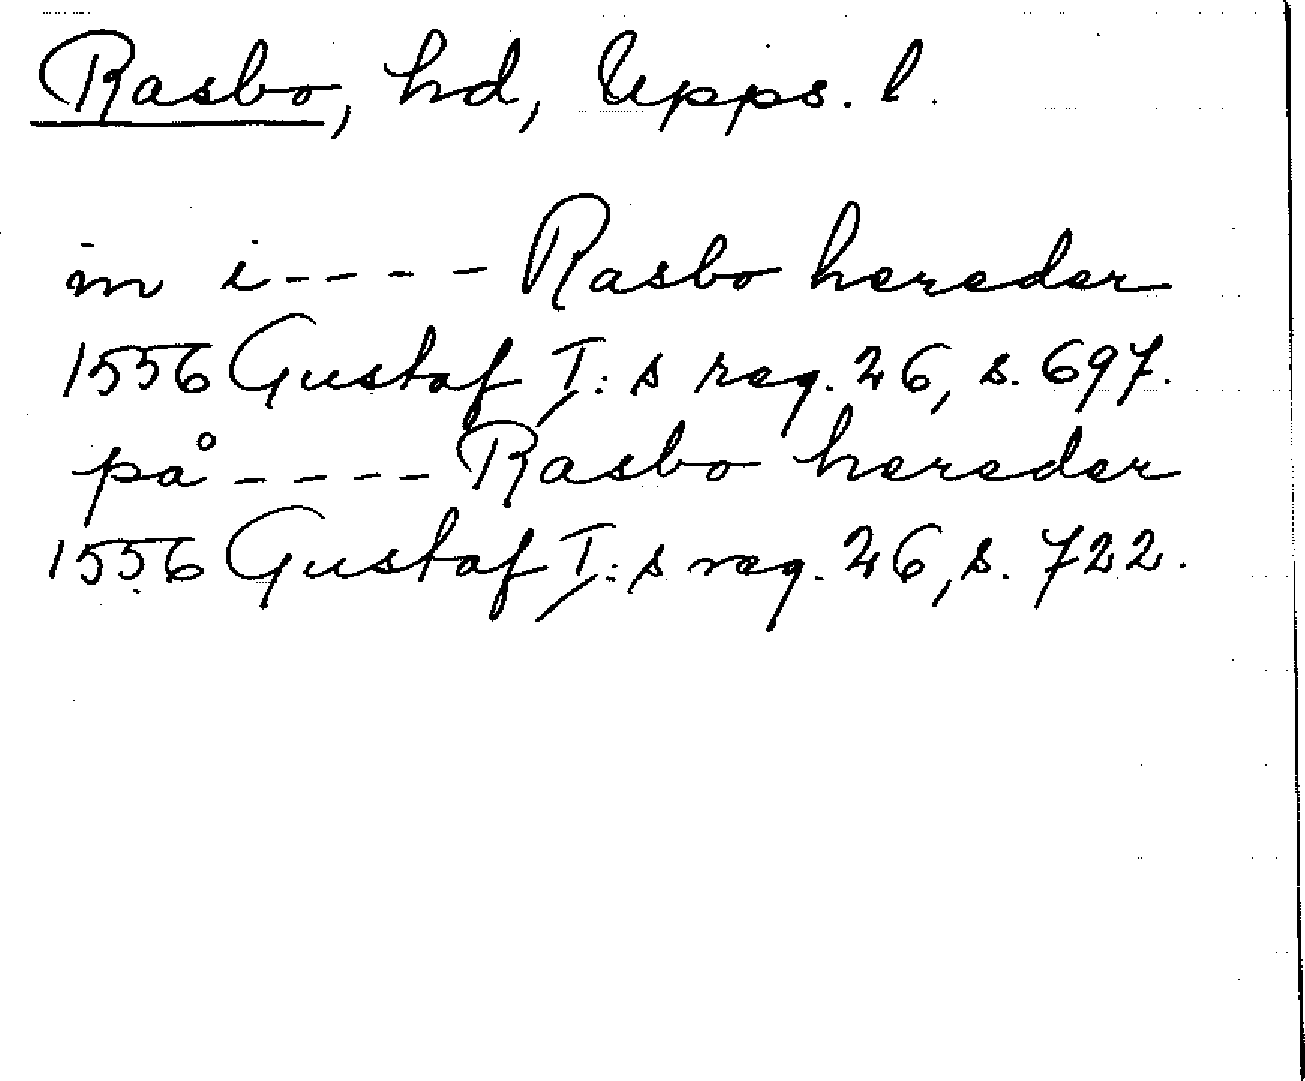 Rasbo, hd, Upps. l.
in i - - - - Rasbo hereder
1556 Gustaf I:s reg. 26, s. 697.
på - - - - Rasbo hereder
1556 Gustaf I:s reg. 26, s. 722.